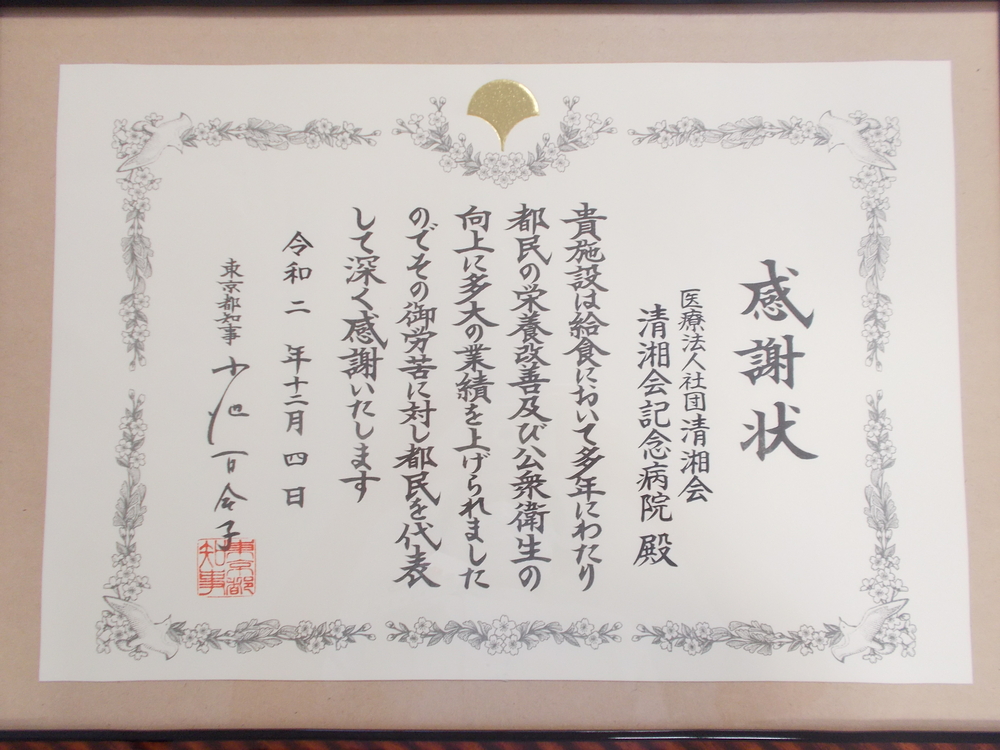 感謝状
医療法人社団清湘会
清湘会記念病院 殿
貴施設は給食において多年にわたり
都民の栄養改善及び公衆衛生の
向上に多大の業績を上げられました
のでその御労苦に対し都民を代表
して深く感謝いたします
令和二 年十二月 四 日
東京都知事 小池百合子
東京都
知事